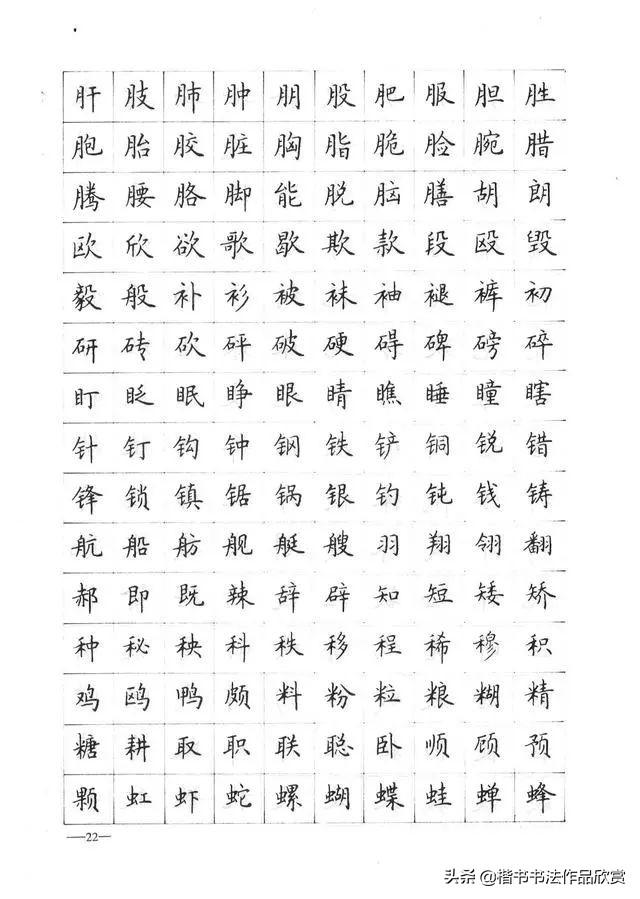 肝肢肺肿朋股肥服胆胜
胞胎胶脏胸脂脆脸腕腊
腾腰胳脚能脱脑膳胡朗
欧欣欲歌歇欺款段殴毁
毅般补衫被袜袖褪裤初
研砖砍砰破硬碍碑磅碎
盯眨眠睁眼睛瞧睡瞳瞎
针钉钩钟钢铁铲铜锐错
锋锁镇锯锅银钓钝钱铸
航船舫舰艇艘羽翔翎翻
郝即既辣辞辟知短矮矫
种秘秧科秩移程稀穆积
鸡鸥鸭颇料粉粒粮糊精
糖耕取职联聪卧顺顾预
颗虹虾蛇螺蝴蝶蛙蝉蜂
—22—
头条 @楷书书法作品欣赏